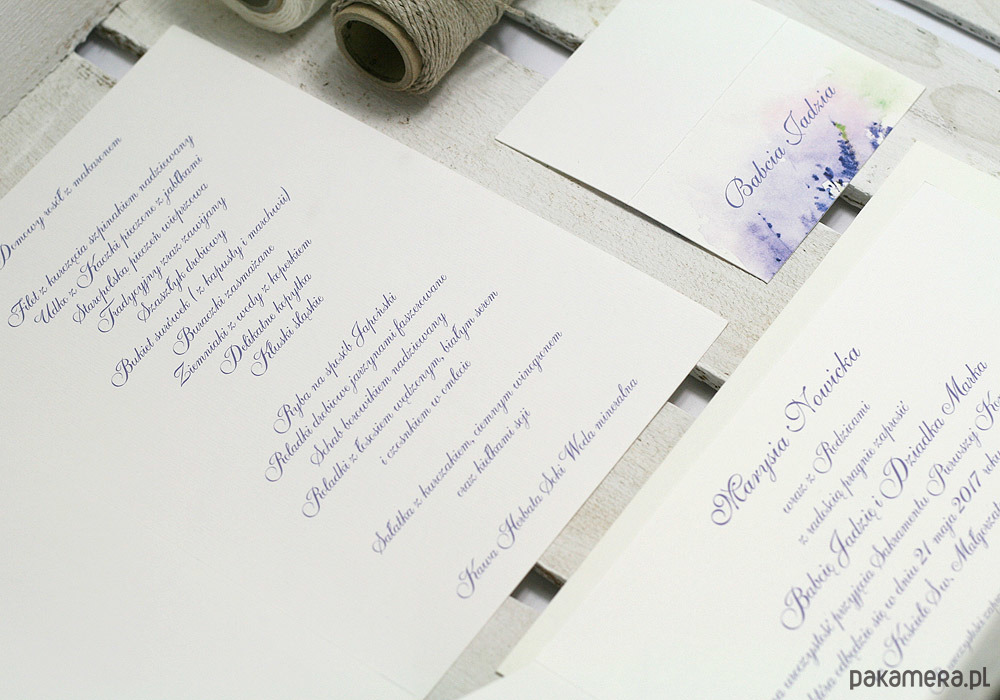 Domowy rosół z makaronem
Filet z kurczęcia szpinakiem nadziewany
Udko z Kaczki pieczone z jabłkami
Staropolska pieczeń wieprzowa
Tradycyjny zraz zawijany
Szaszłyk drobiowy
Bukiet surówek ( z kapusty i marchwii)
Buraczki zasmażane
Ziemniaki z wody z koperkiem
Delikatne kopytka
Kluski śląskie
Ryba na sposób Japoński
Roladki drobiowe jarzynami faszerowane
Schab borowikiem nadziewany
Roladki z łososiem wędzonym, białym serem
i czosnkiem w omlecie
Sałatka z kurczakiem, ciemnym winogronem
oraz kiełkami soji
Kawa Herbata Soki Woda mineralna
Babcia Jadzia
Marysia Nowicka
wraz z Rodzicami
z radością pragnie zaprosić
Babcię Jadzię i Dziadka Marka
na uroczystość przyjęcia Sakramentu Pierwszej
która odbędzie się w dniu 21 maja 2017 roku
Kościele Św. Małgorzaty
pakamera.pl